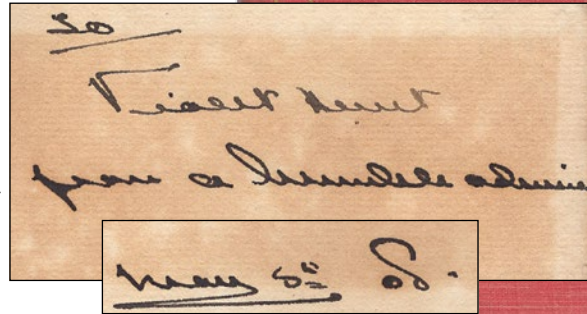 To
Violet Hunt
from a humble admire
May